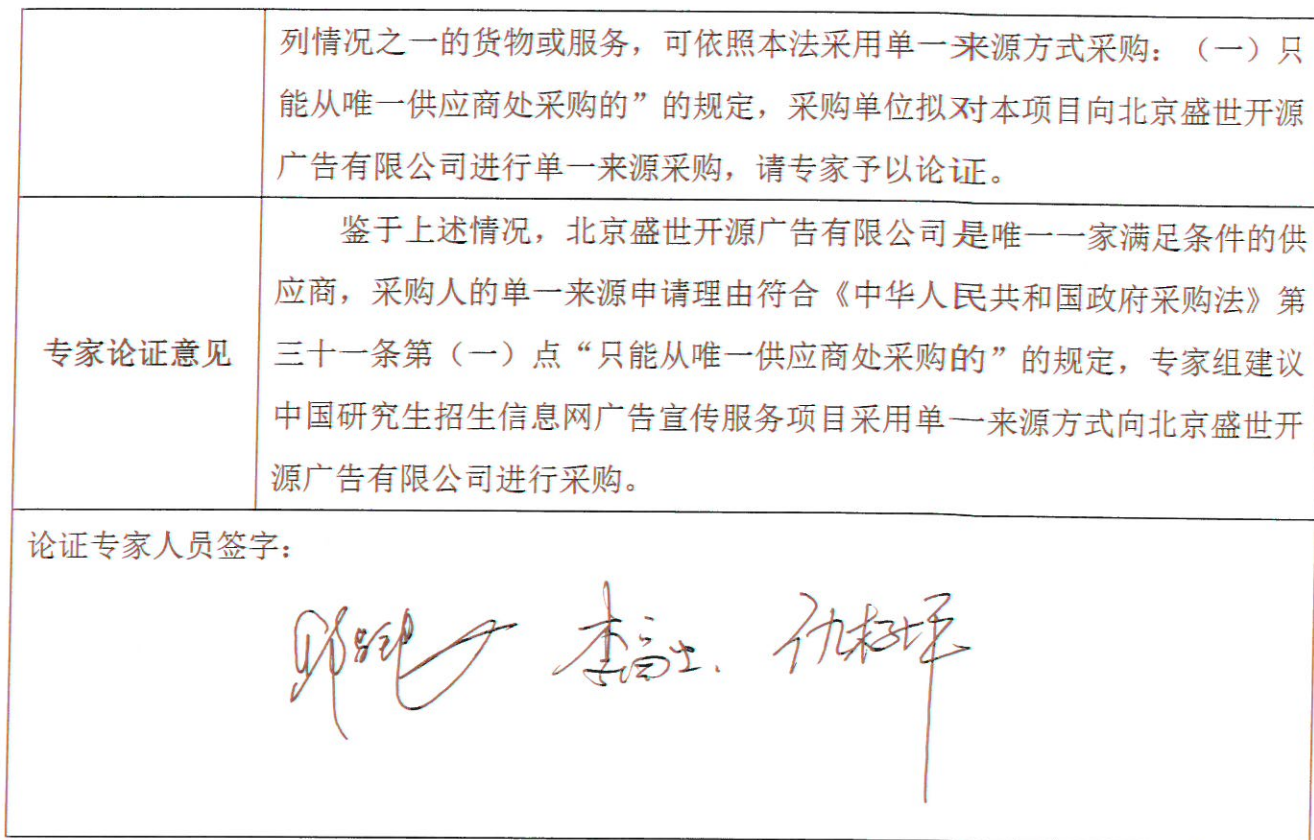 列情况之一的货物或服务，可依照本法采用单一来源方式采购：（一）只
能从唯一供应商处采购的”的规定，采购单位拟对本项目向北京盛世开源
广告有限公司进行单一来源采购，请专家予以论证。
鉴于上述情况，北京盛世开源广告有限公司是唯一一家满足条件的供
应商，采购人的单一来源申请理由符合《中华人民共和国政府采购法》第
专家论证意见
三十一条第（一）点“只能从唯一供应商处采购的”的规定，专家组建议
中国研究生招生信息网广告宣传服务项目采用单一来源方式向北京盛世开
源广告有限公司进行采购。
论证专家人员签字：
李高士